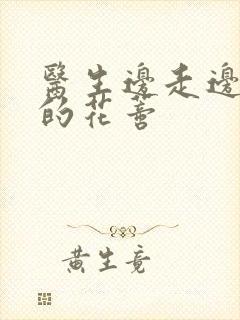 醫生邊走邊
的花
黄生竟